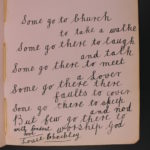 Some go to Church
to take a walke
Some go there to laugh
and talk
Some go there to meet
a Lover
Some go there there
faults to cover
Some go there to sleep
and nod
But few go there to
worship God